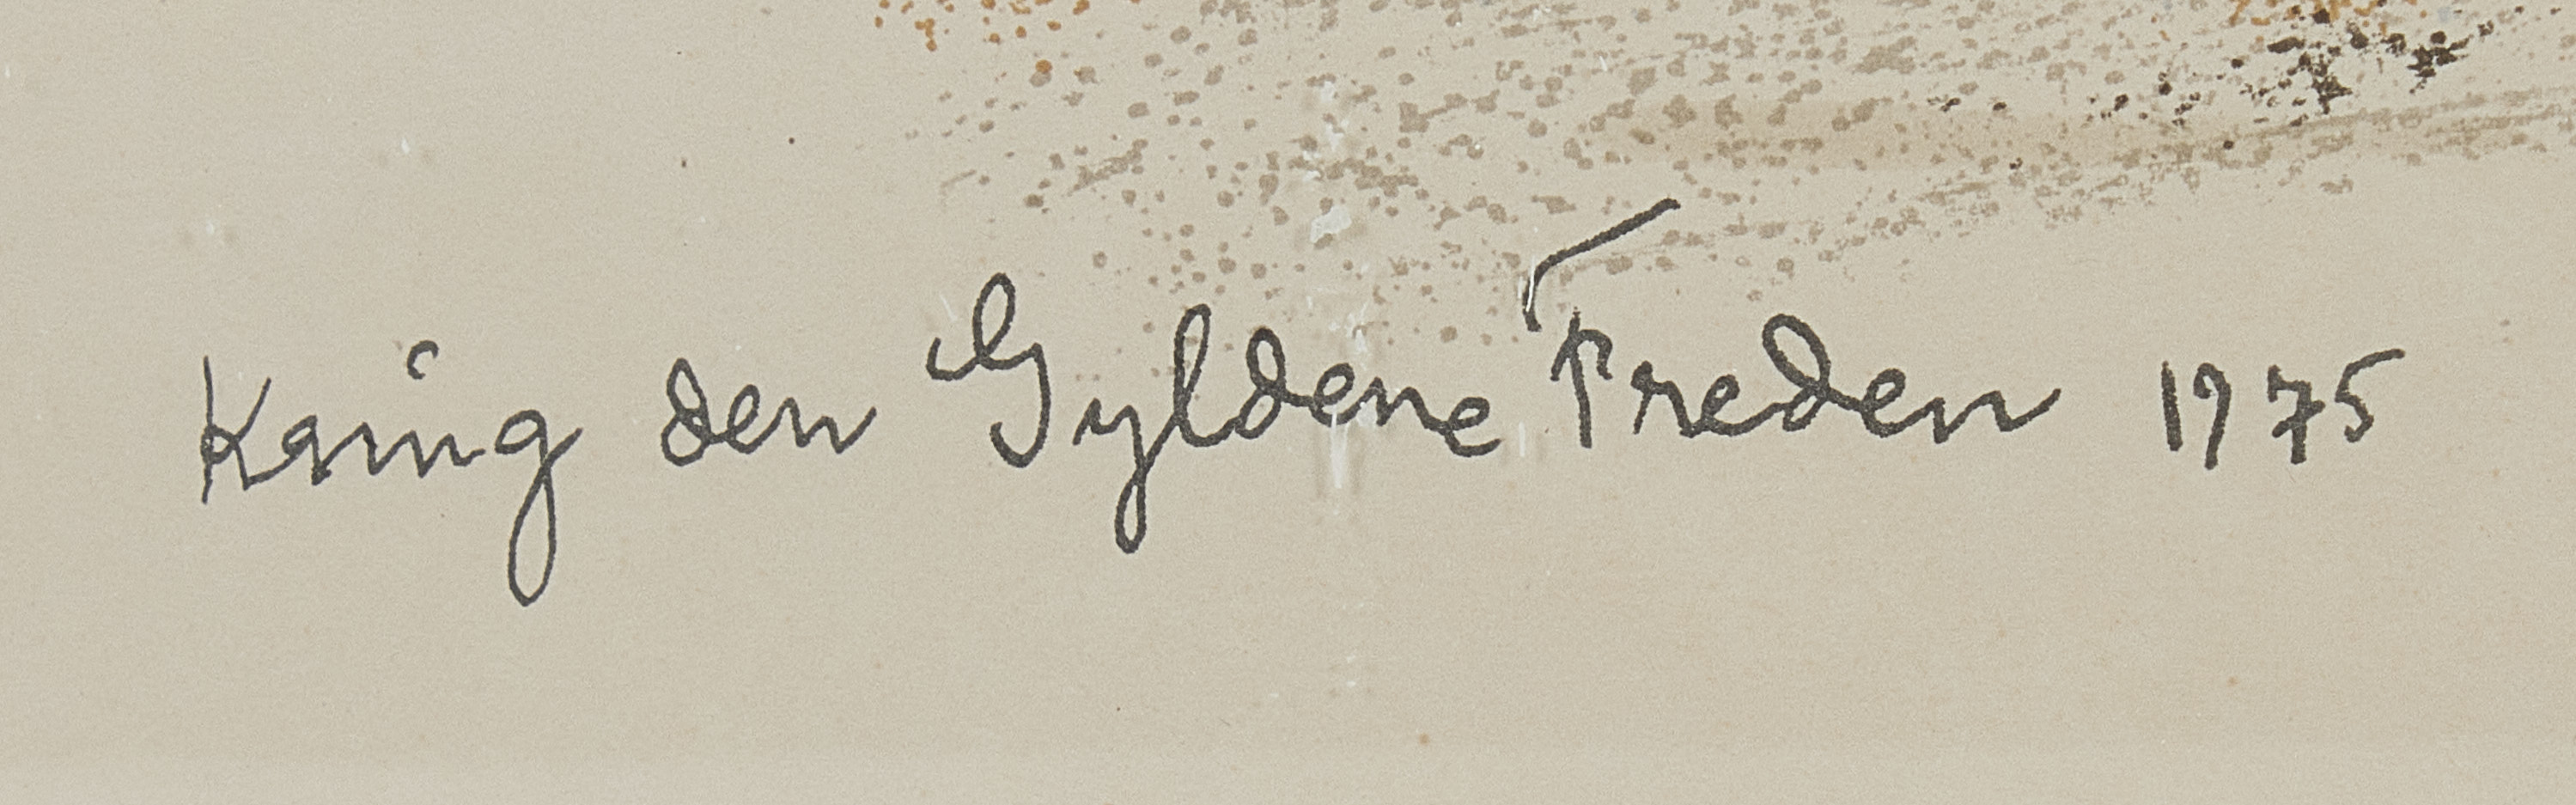 Kring den Gyldene Freden 1975